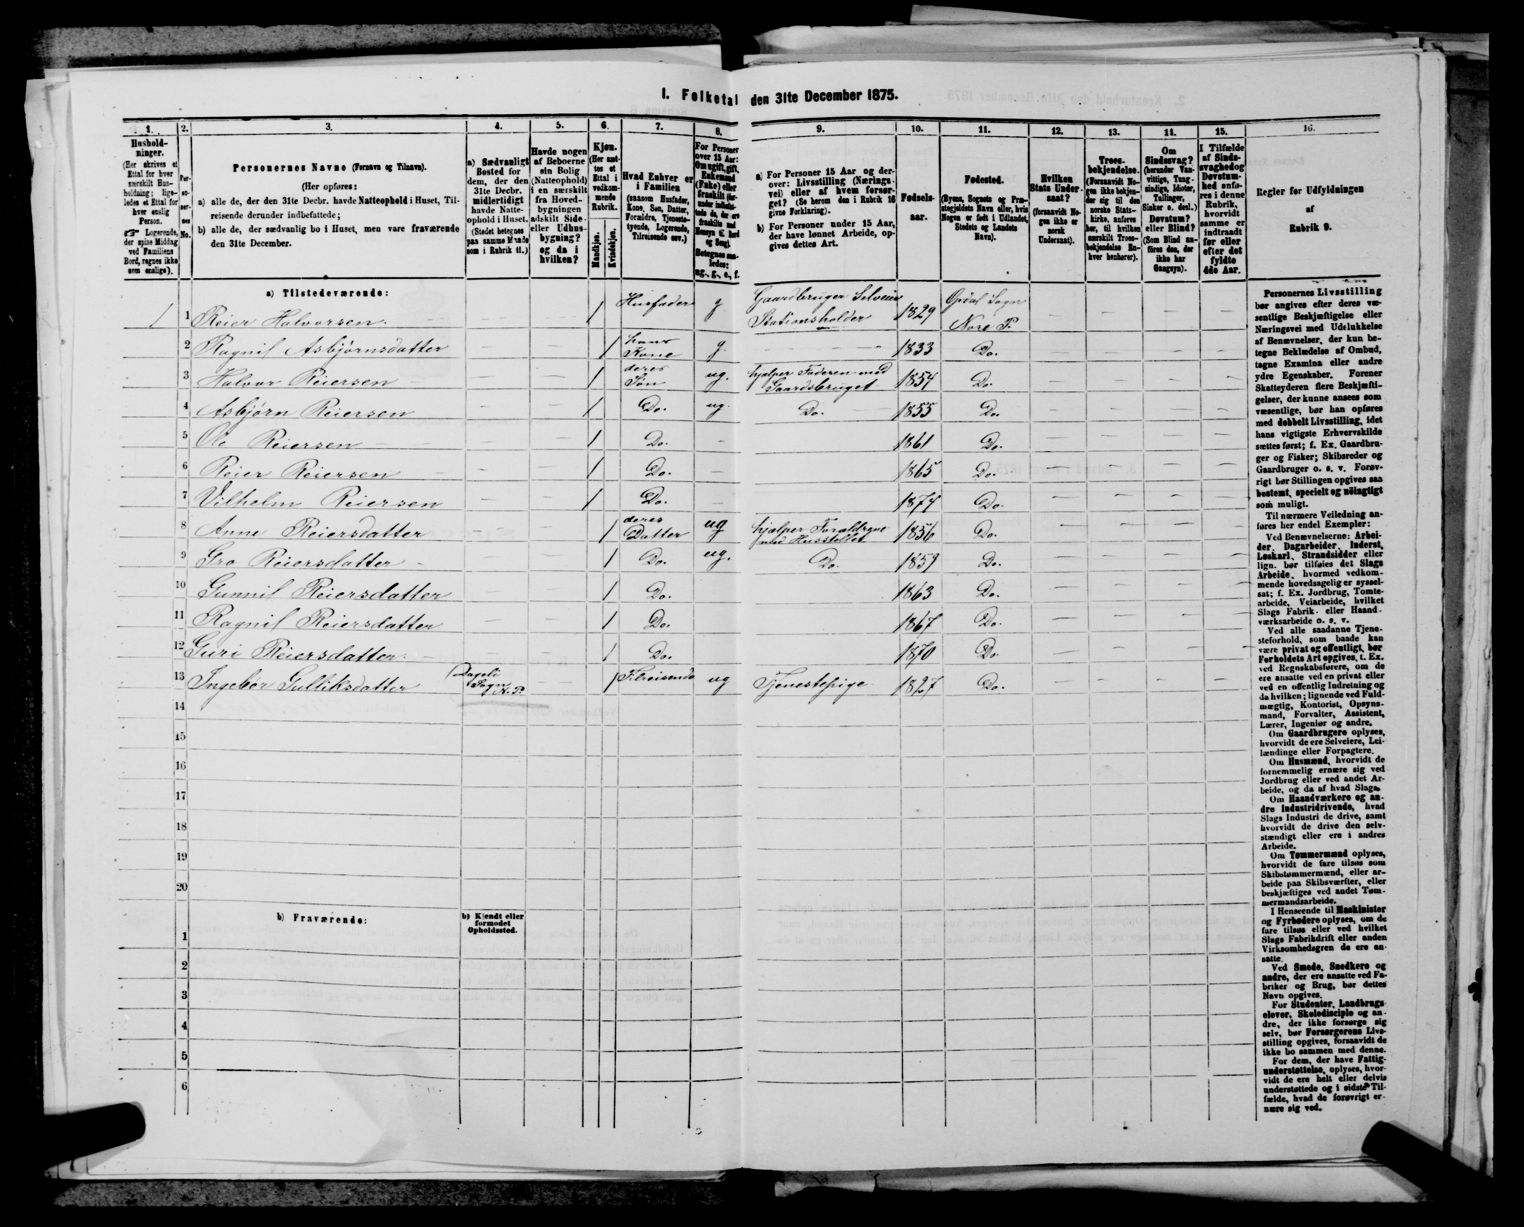 I. Folketal den 31te December 1875.
1.
Hushold-
ninger.
(Her skrives et
Ettal for hver
særskilt Hus-
holdning; lige-
ledes et Ettal for
hver enslig
Person.
☞ Logerende,
der spise Middag
ved Familiens
Bord, regnes ikke
som enslige).
2.
Per-
so-
ner-
nes
No.
3.
Personernes Navne (Fornavn og Tilnavn).
(Her opføres:
a) alle de, der den 31te Decbr. havde Natteophold i Huset, Til-
reisende derunder indbefattede;
b) alle de, der sædvanlig bo i Huset, men vare fraværende
den 31te December.
4.
a) Sædvanligt
Bosted for
dem, der den
31te Decbr.
midlertidigt
havde Natte-
ophold i Huset.
(Stedet betegnes
paa samme Maade
som i Rubrik 11.)
5.
Havde nogen
af Beboerne
sin Bolig
(Natteophold)
i en særskilt
fra Hoved-
bygningen
adskilt Side-
eller Udhus-
bygning?
og da i
hvilken?
6.
Kjøn.
(Her sæt-
tes et
Ettal i
vedkom-
mende
Rubrik.
Mandkjøn.
Kvindekjøn.
7.
Hvad Enhver er
i Familien
(saasom Husfader,
Kone, Søn, Datter,
Forældre, Tjeneste-
tyende, Logerende,
Tilreisende osv.)
8.
For Personer
over 15 Aar:
Om ugift, gift,
Enkemand
(Enke) eller
fraskilt
Betegnes saa-
ledes:
ug., g., e., f.
9.
a) For Personer 15 Aar og der-
over: Livsstilling (Nærings-
vei) eller af hvem forsør-
get? (Se herom den i Rubrik 16
givne Forklaring).
b) For Personer under 15 Aar,
der have lønnet Arbeide, op-
gives dettes Art.
10.
Fødsels-
aar.
11.
Fødested.
(Byens, Sognets og Præ-
stegjeldets Navn eller, hvis
Nogen er født i Udlandet,
Stedets og Landets
Navn).
12.
Hvilken
Stats Under-
saat?
(forsaavidt No-
gen ikke er
norsk
Undersaat).
13.
Troes-
bekjendelse.
(Forsaavidt No-
gen ikke bekjen-
der sig til den
norske Stats-
kirke, anføres
her, til hvilken
særskilt Troes-
bekjendelse En-
hver henhører).
14.
Om
Sindssvag?
(herunder Van-
vittige, Tung-
sindige, Idioter,
Tullinger,
Sinker o. desl.)
Døvstum?
eller Blind?
(Som Blind an-
føres den, der
ikke har
Gangsyn).
15.
I Tilfælde
af Sinds-
svaghed og
Døvstum-
hed anfø-
res i denne
Rubrik,
hvorvidt
samme er
indtraadt
før eller
efter det
fyldte
4de Aar.
16.
Regler for Udfyldningen
af
Rubrik 9.
a) Tilstedeværende:
1 1 Reier Halvorsen. 1 Husfader g Gaardbruger Selveier Stationsholder 1829 Opdal Sogn Nore P.
2 Ragnil Asbjørnsdatter 1 hans Kone g. 1833 Do.
3 Halvor Reiersen 1 deres Søn ug. hjælper Faderen med Gaardsbruget 1854 Do.
4 Asbjørn Reiersen 1 Do. ug. Do. 1855 Do.
5 Ole Reiersen 1 Do. 1861 Do.
6 Reier Reiersen 1 Do. 1865 Do.
7 Vilhelm Reiersen 1 Do. 1874 Do.
8 Anne Reiersdatter 1 deres Datter ug hjælper Forældrene med Husstellet 1856 Do.
9 Gro Reiersdatter 1 Do. ug. Do. 1859 Do.
10 Gunnil Reiersdatter 1 Do. 1863 Do.
11 Ragnil Reiersdatter 1 Do. 1867 Do.
12 Guri Reiersdatter. 1 Do. 1870 Do.
13 Ingebor Gulliksdatter Dageli Sogn N. P. 1 Tilreisende ug Tjenestepige 1827 Do.
14
15
16
17
18
19
20
b) Fraværende:
b) Kjendt eller
formodet
Opholdssted.
1
2
3
4
5
6
Personernes Livsstilling
bør angives efter deres væ-
sentlige Beskjæftigelse eller
Næringsvei med Udelukkelse
af Benævnelser, der kun be-
tegne Beklædelse af Ombud,
tagne Examina eller andre
ydre Egenskaber. Forener
Skatteyderen flere Beskjæfti-
gelser, der kunne ansees som
væsentlige, bør han opføres
med dobbelt Livsstilling, idet
hans vigtigste Erhvervskilde
sættes først; f. Ex. Gaardbru-
ger og Fisker; Skibsreder og
Gaardbruger o. s. v. Forøv-
rigt bør Stillingen opgives saa
bestemt, specielt og nöiagtigt
som muligt.
Til nærmere Veiledning an-
føres her endel Exempler:
Ved Benævnelserne: Arbei-
der, Dagarbeider, Inderst,
Løskarl, Strandsidder eller
lign. bør tilføies det Slags
Arbeide, hvormed vedkom-
mende hovedsagelig er syssel-
sat; f. Ex. Jordbrug, Tomte-
arbeide, Veiarbeide, hvilket
Slags Fabrik- eller Haand-
værksarbeide o. s. v.
Ved alle saadanne Tjene-
steforhold, som baade kan
være privat og offentligt, bør
Forholdets Art opgives, t. Ex.
ved Regnskabsførere, om de
ere ansatte ved en privat eller
ved en offentlig Indretning og
da hvilken; lignende ved Fuld-
mægtig, Kontorist, Opsyns-
mand, Forvalter, Assistent,
Lærer, Ingeniør og andre.
Om Gaardbrugere oplyses,
hvorvidt de ere Selveiere, Lei-
lændinge eller Forpagtere.
Om Husmænd, hvorvidt de
fornemmelig ernære sig ved
Jordbrug eller ved andet Ar-
beide, og da af hvad Slags.
Om Haandværkere og an-
dre Industridrivende, hvad
Slags Industri de drive, samt
hvorvidt de drive den selv-
stændigt eller ere i andres
Arbeide.
Om Tømmermænd oplyses,
hvorvidt de fare tilsøs som
Skibstømmermænd, eller ar-
beide paa Skibsværfter, eller
beskjæftiges ved andet Tøm-
mermandsarbeide.
I Henseende til Maskinister
og Fyrbødere oplyses, om de
fare tilsøs eller ved hvilket
Slags Fabrikdrift eller anden
Virksomhedsgren de ere an-
satte.
Ved Smede, Snedkere og
andre, der ere ansatte ved Fa-
briker og Brug, bør dettes
Navn opgives.
For Studenter, Landbrugs-
elever, Skoledisciple og an-
dre, der ikke forsørge sig
selv, bør Forsørgerens Livs-
stilling opgives, forsaavidt de
ikke bo sammen med denne.
For dem, der have Fattig-
understøttelse, oplyses, hvor-
vidt de ere helt eller delvis
understøttede og i sidste Til-
fælde, hvad de forøvrigt er-
nære sig ved.